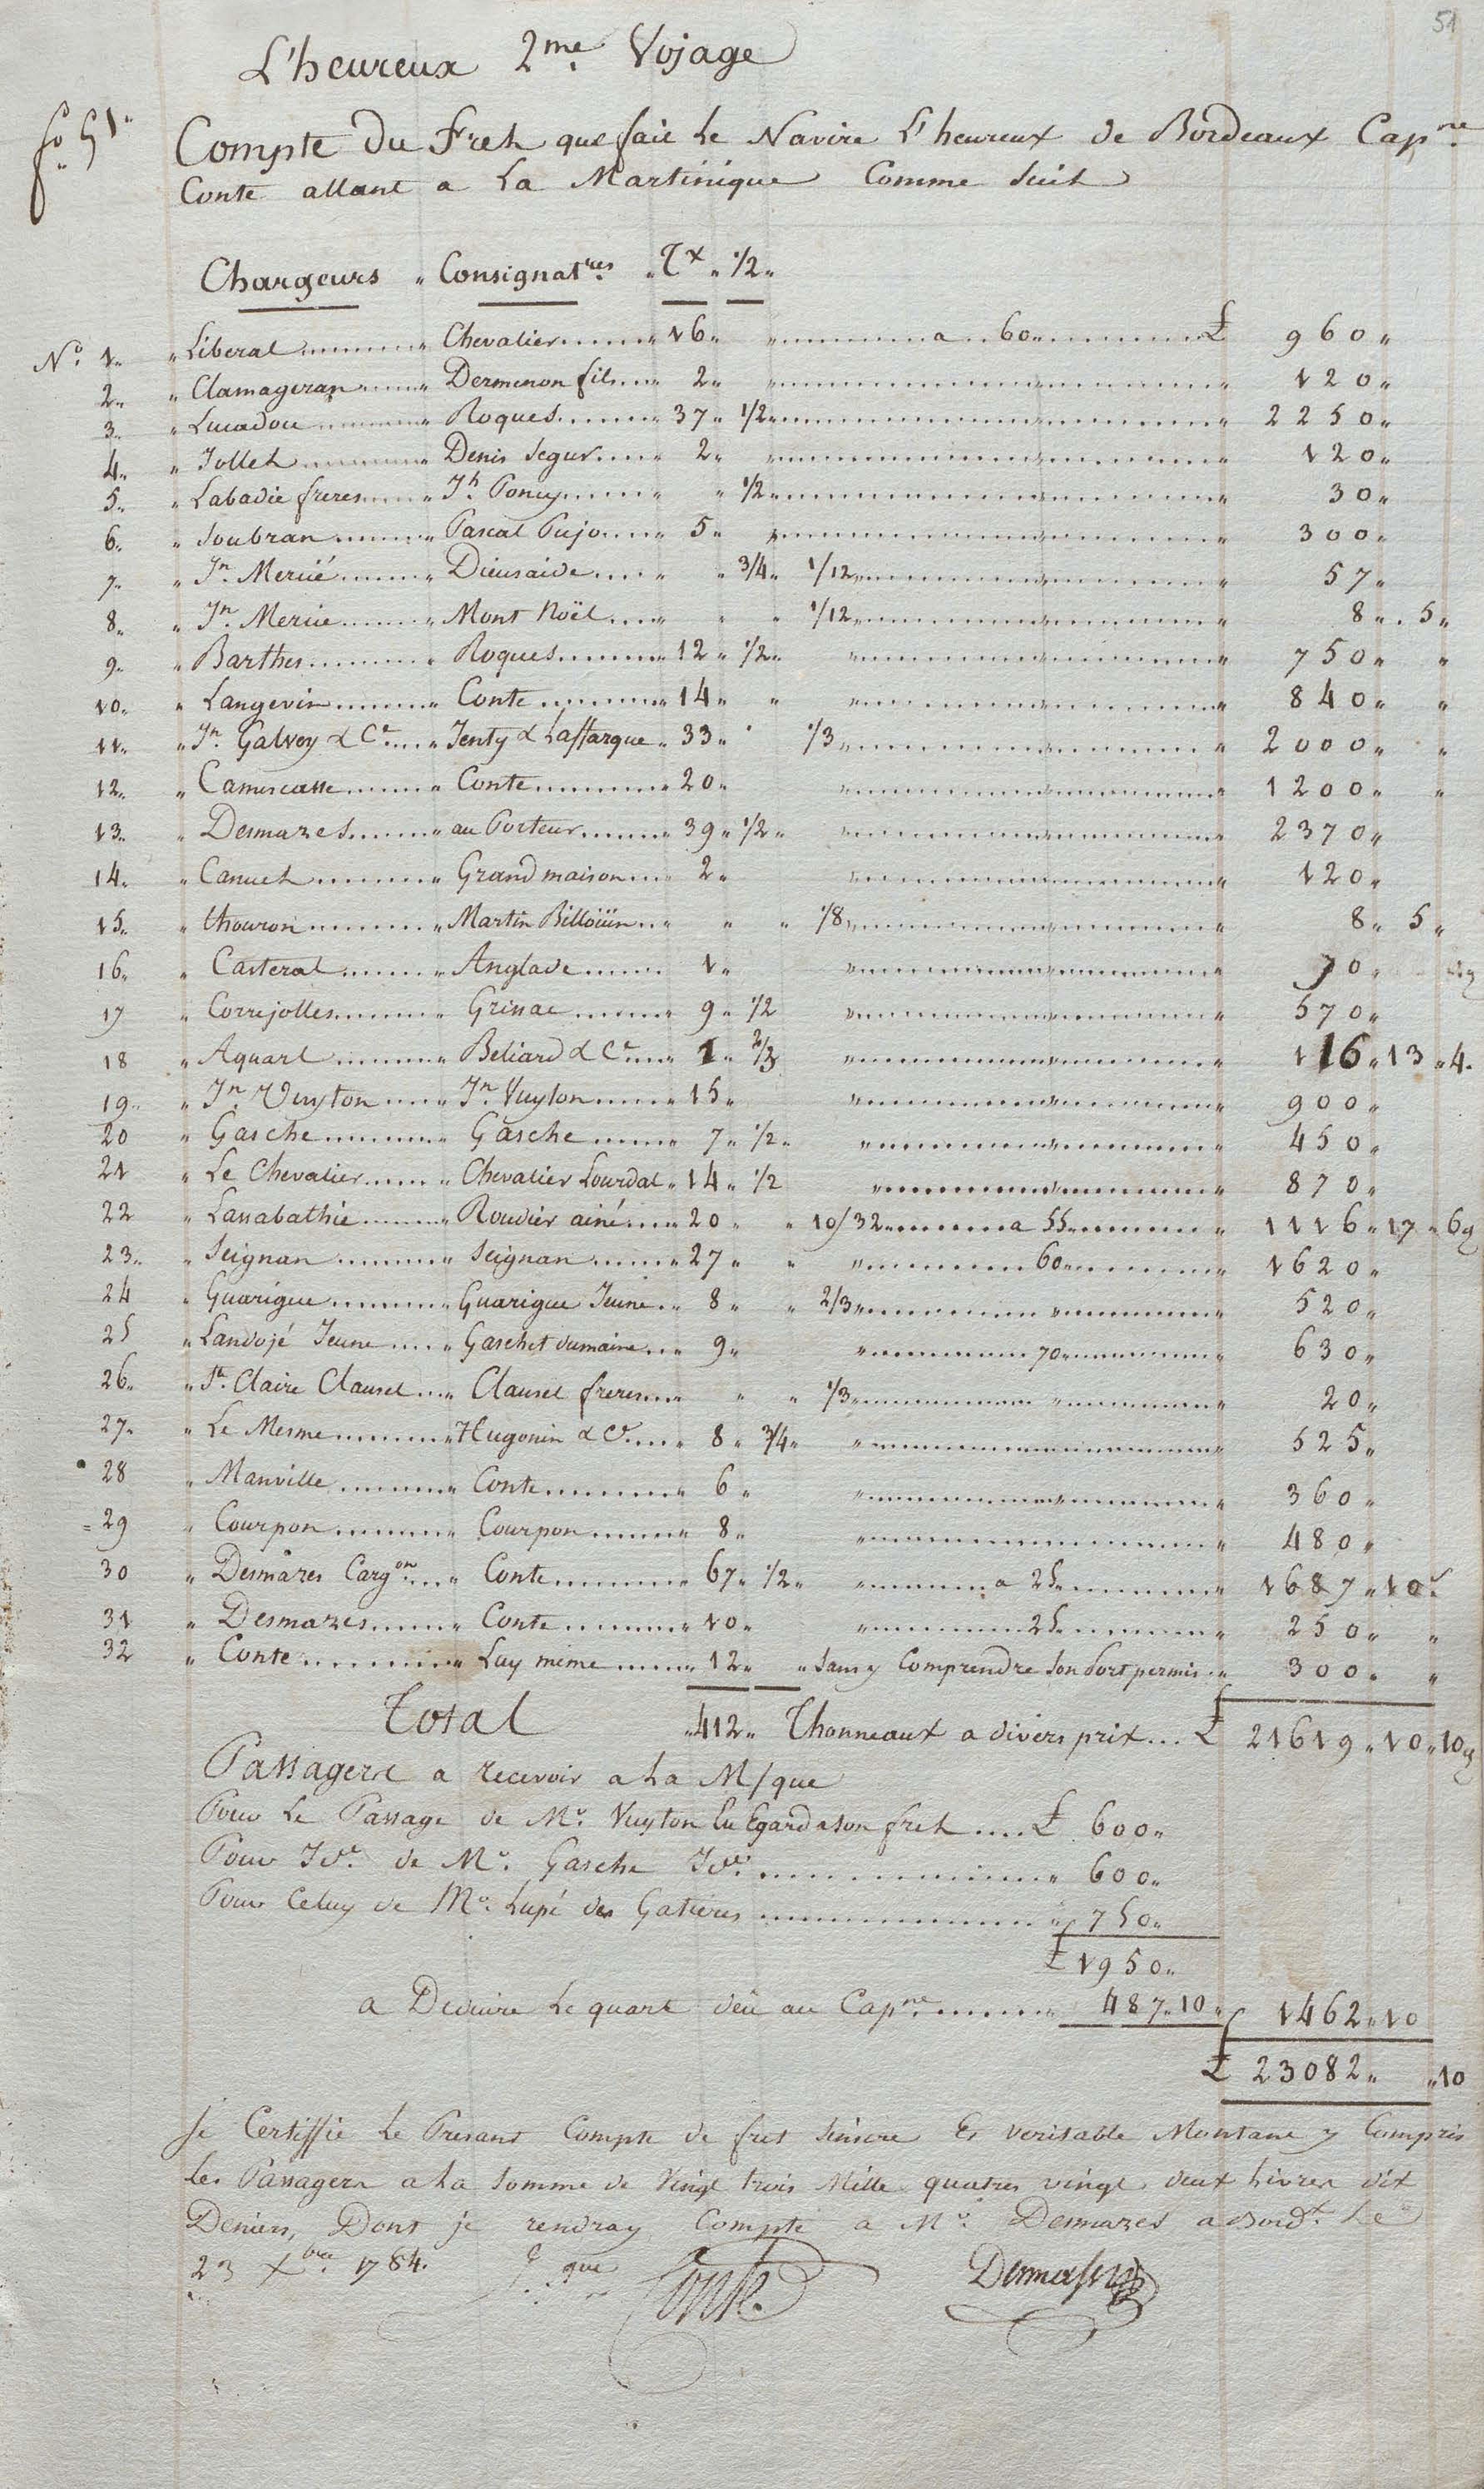 51
L'heureux 2me. Voyage
fo. 51.
Compte Du Fret que fait Le Navire L'heureux de Bordeaux Capne.
Conte allant a La Martinique Comme Suit
Chargeurs " Consignatres. " Tx " 1/2 "
No. 1 " Liberal " Chevalier " 16 " a 60 " £ 960 "
2 " Clamageran " Dermenon fils " 2 " 120 "
3 " Lucadou " Roques " 37 " 1/2 " 2250 "
4 " Jollet " Denis Segur " 2 " 120 "
5 " Labadie freres " Jh. Poncy " " 1/2 " 30 "
6 " Soubran " Pascal Pujo " 5 " 300 "
7 " Jn. Mercié " Dieusaide " " 3/4 " 1/12 " 57 "
8 " Jn. Mercié " Mont Noël " " " 1/12 " 8 " 5 "
9 " Barthes " Roques " 12 " 1/2 " 750 " "
10 " Langevin " Conte " 14 " " 840 " "
11 " Jn. Galwey & Ce " Jenty & Laffargue " 33 " 1/3 " 2000 " "
12 " Camescasse " Conte " 20 " 1200 " "
13 " Desmazes " au Porteur " 39 " 1/2 " 2370 "
14 " Canuet " Grand maison " 2 " 120 "
15 " thouron " Martin Billoüin " " " 1/8 " 8 " 5 "
16 " Casterat " Anglade " 1 " 70 "
17 " Correjolles " Grissac " 9 " 1/2 " 570 "
18 " Aquart " Beliard & Ce " 1 " 2/3 " 116 " 13 " 4
19 " Jn. Vuyton " Jn. Vuyton " 15 " 900 "
20 " Gasche " Gasche " 7 " 1/2 " 450 "
21 " Le Chevalier " Chevalier Lourdat " 14 " 1/2 " 870 "
22 " Lassabathie " Roudier ainé " 20 " " 10/32 " a 55 " 1116 " 17 " 6d
23 " Seignan " Seignan " 27 " " 60 " 1620 "
24 " Guarigue " Guarigue Jeune " 8 " " 2/3 " 520 "
25 " Landojé Jeune " Gaschet dumaine " 9 " 70 " 630 "
26 " Ste. Claire Clausel " Clausel freres " " " 1/3 " 20 "
27 " Le Mesme " Hugonin & Ce " 8 " 3/4 " 525 "
28 " Manville " Conte " 6 " 360 "
29 " Courpon " Courpon " 8 " 480 "
30 " Desmazes Cargon. " Conte " 67 " 1/2 " a 25 " 1687 " 10s
31 " Desmazes " Conte " 10 " 25 " 250 " "
32 " Conte " Luy meme " 12 " " Sans y Comprendre Son Port permis " 300 " "
Total " 412 " Thonneaux a divers prix ... £ 21619 " 10 " 10d
Passagers a recevoir a La M/que
Pour Le Passage de Mr. Vuyton Eu Egard a Son fret .... £ 600 "
Pour Ide. de Mr. Gasche Ide. " 600 "
Pour Celuy de Mr. Lupé des Gatieres " 750 "
£ 1950 "
a Deduire Le quart deü au Capne. " 487 " 10 " 1462 " 10
£ 23082 " " 10
Je Certiffie Le Presant Compte de fret Sinsere Et veritable Montant y Compris
Les Passagers a La Somme de Vingt trois Mille quatres vingt deux Livres dix
Deniers, Dont je rendray Compte a Mr. Desmazes a Bordx. Le
23 Xbre. 1784.
Conte.
Desmazes